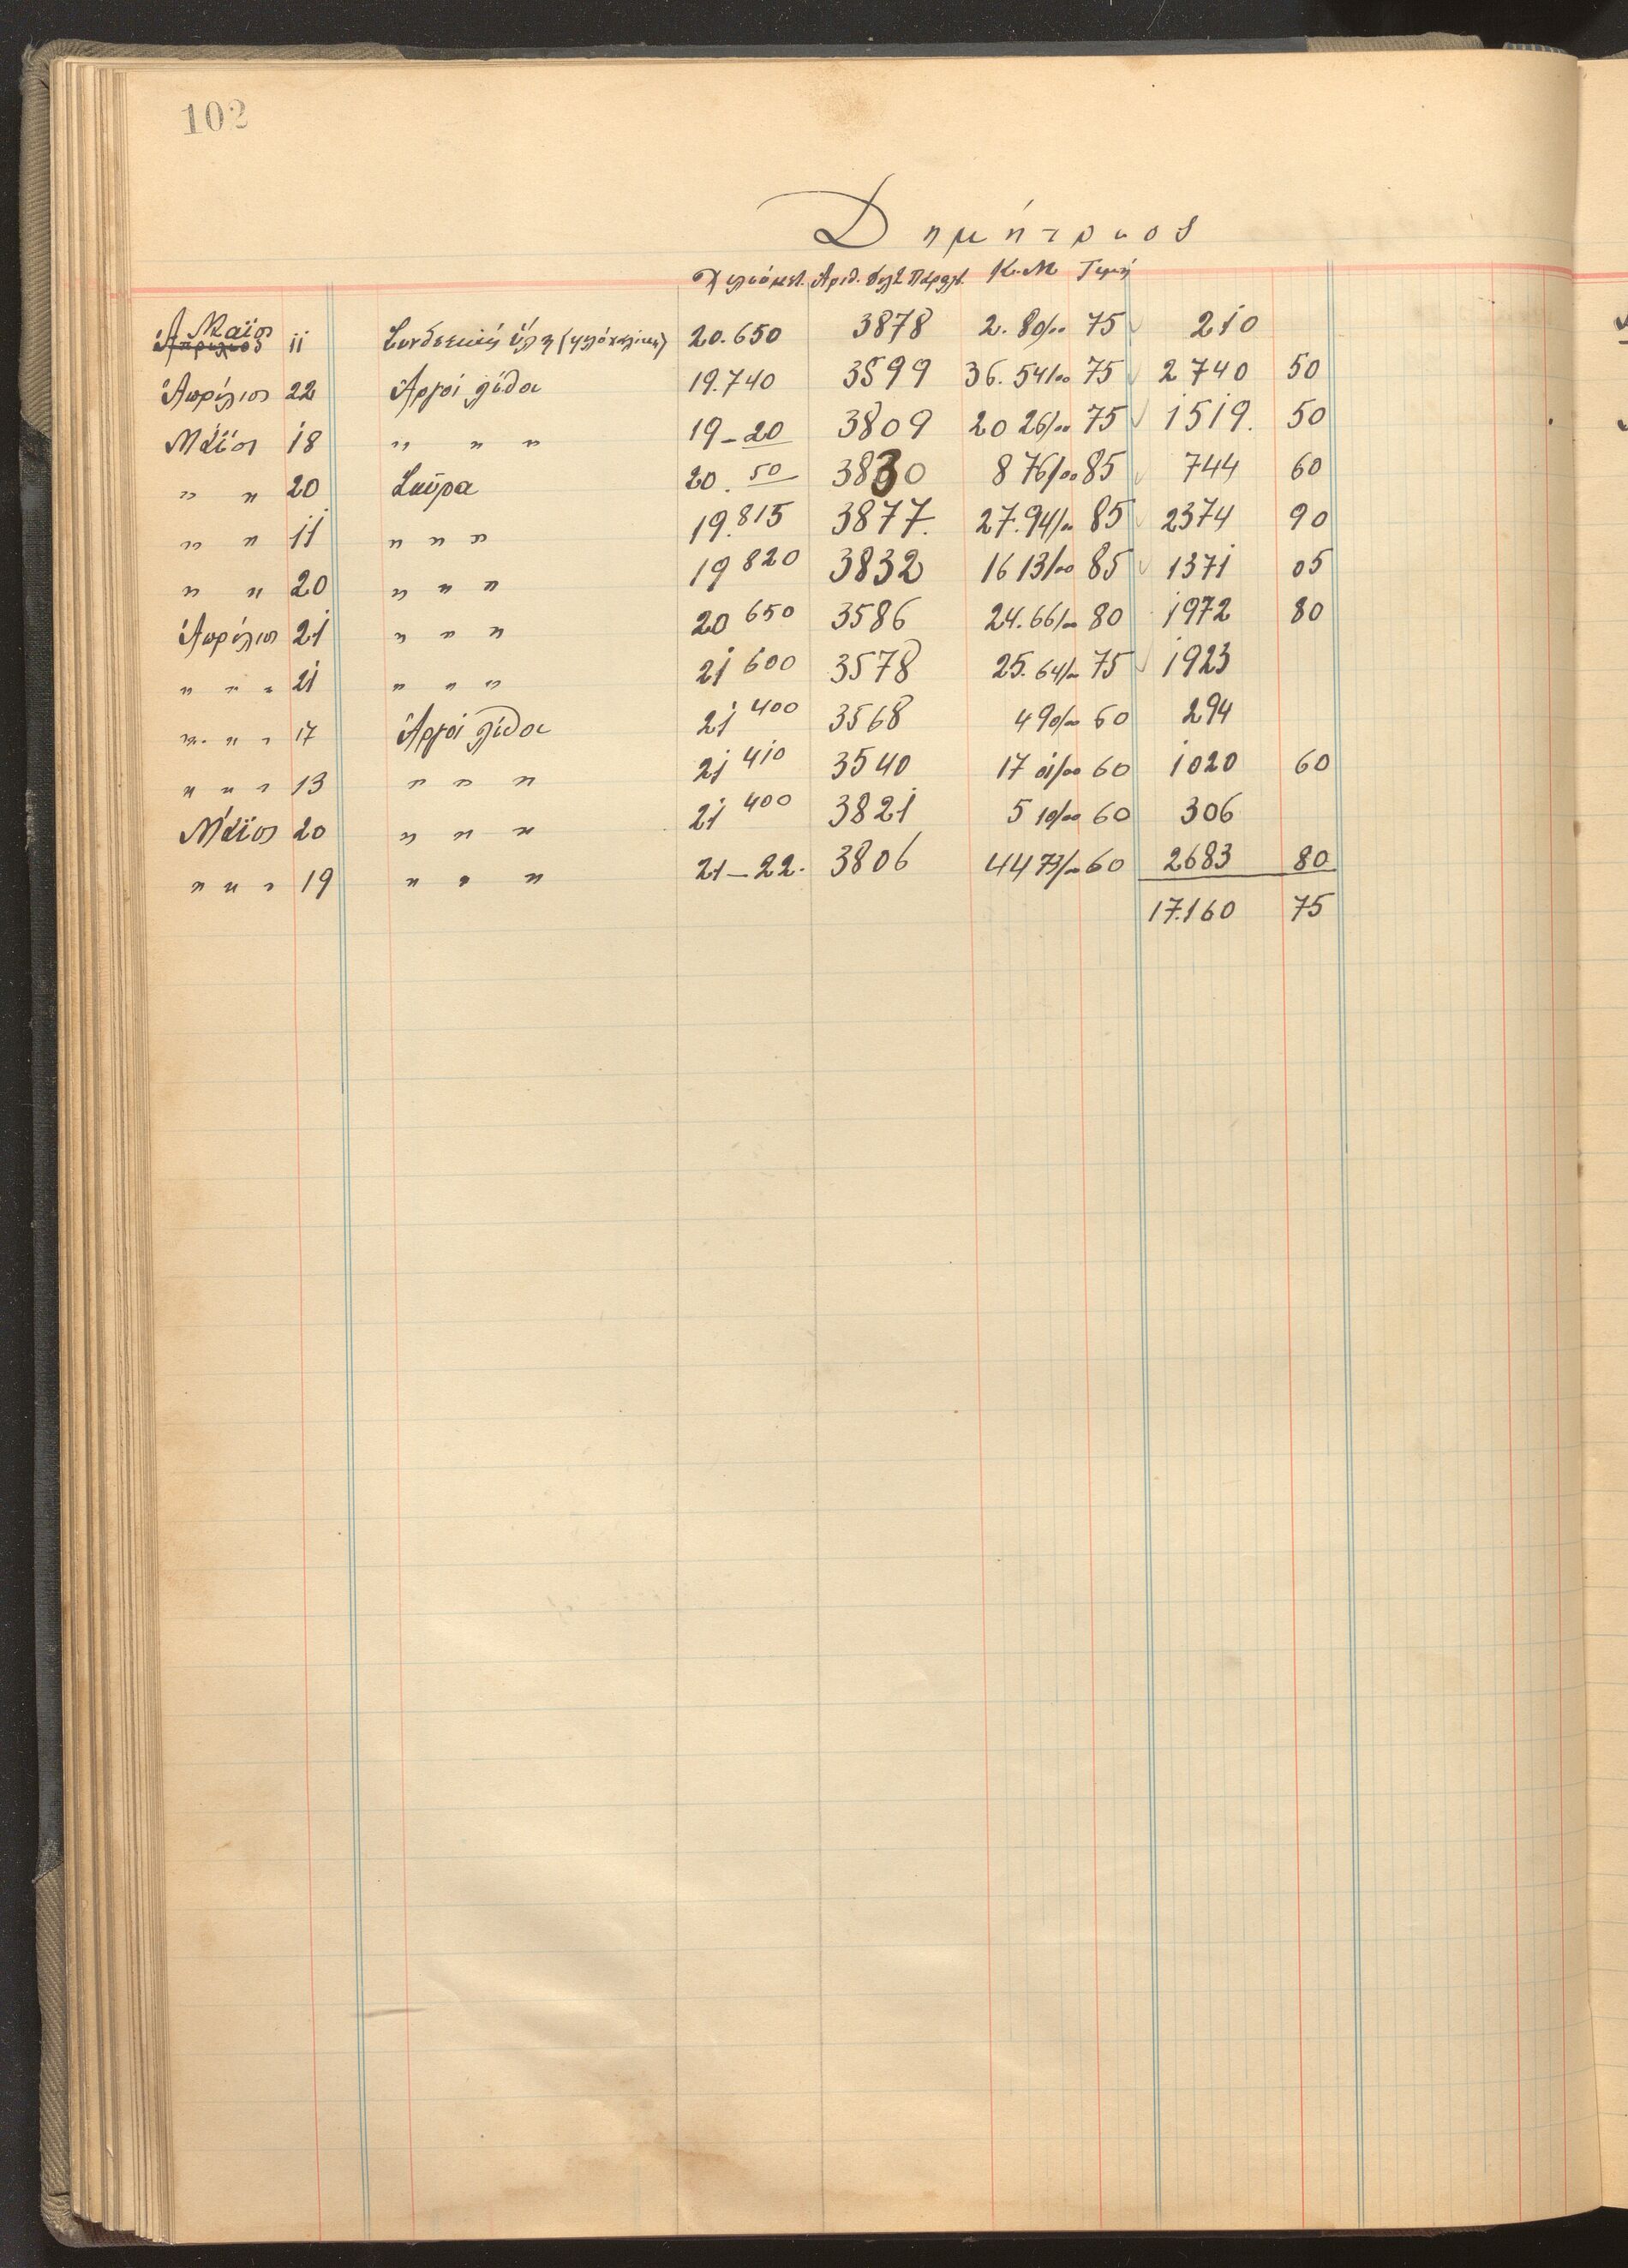 102
Δημήτριος
Χιλιόμετ. Αριθ. Δελτ Παραλ. Κ.Μ Τιμή
Μαϊος 11 Συνδετική ύλη 20.650 3878 2.80/00 75 210
Απρίλιος 22 Αργοί λίθοι 19.740 3599 36.54/00 75 2740 50
Μάϊος 18 " " " 19-20 3809 20 26/00 75 1519. 50
" " 20 Σκύρα 20.50 3830 8 76/00 85 744 60
" " 11 " " " 19.815 3877. 27.94/00 85 2374 90
" " 20 " " " 19 820 3832 16 13/00 85 1371 05
Απρίλιος 21 " " " 20 650 3586 24.66/00 80 1972 80
" " " 21 " " " 21 600 3578 25.64/00 75 1923
" " " 17 Αργοί λίθοι 21 400 3568 4 90/00 60 294
" " " 13 " " " 21 410 3540 17 01/00 60 1020 60
Μάϊος 20 " " " 21 400 3821 5 10/00 60 306
" " " 19 " " " 21-22. 3806 44 73/00 60 2683 80
17.160 75